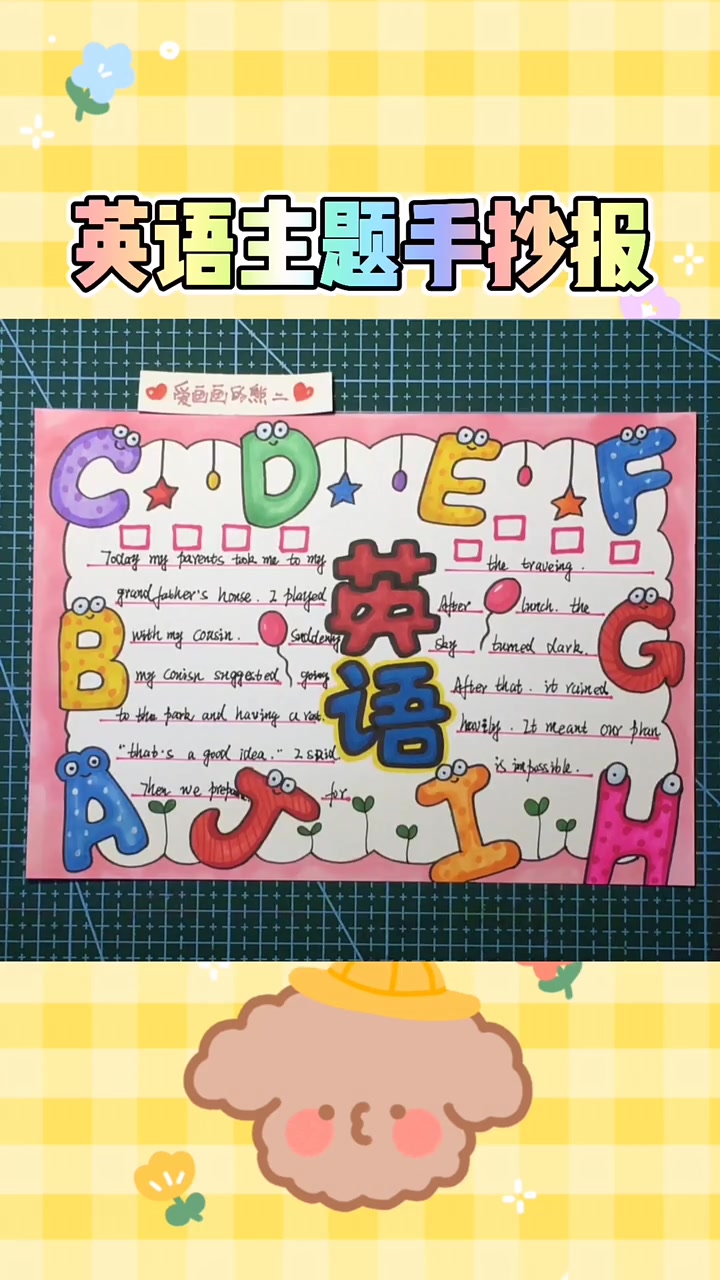 英语主题手抄报
爱画画的熊二
C D E F
Today my parents took me to my
grandfather's honse. I played
with my corsin. Suddenly
my conisn suggested going
to the park and having a rest.
"that's a good idea." I said.
Then we prepare for
the traveing.
After lunch. the
sky turned dark.
After that. it rained
heavily. It meant our plan
is impossible.
英语
B G
A J I H